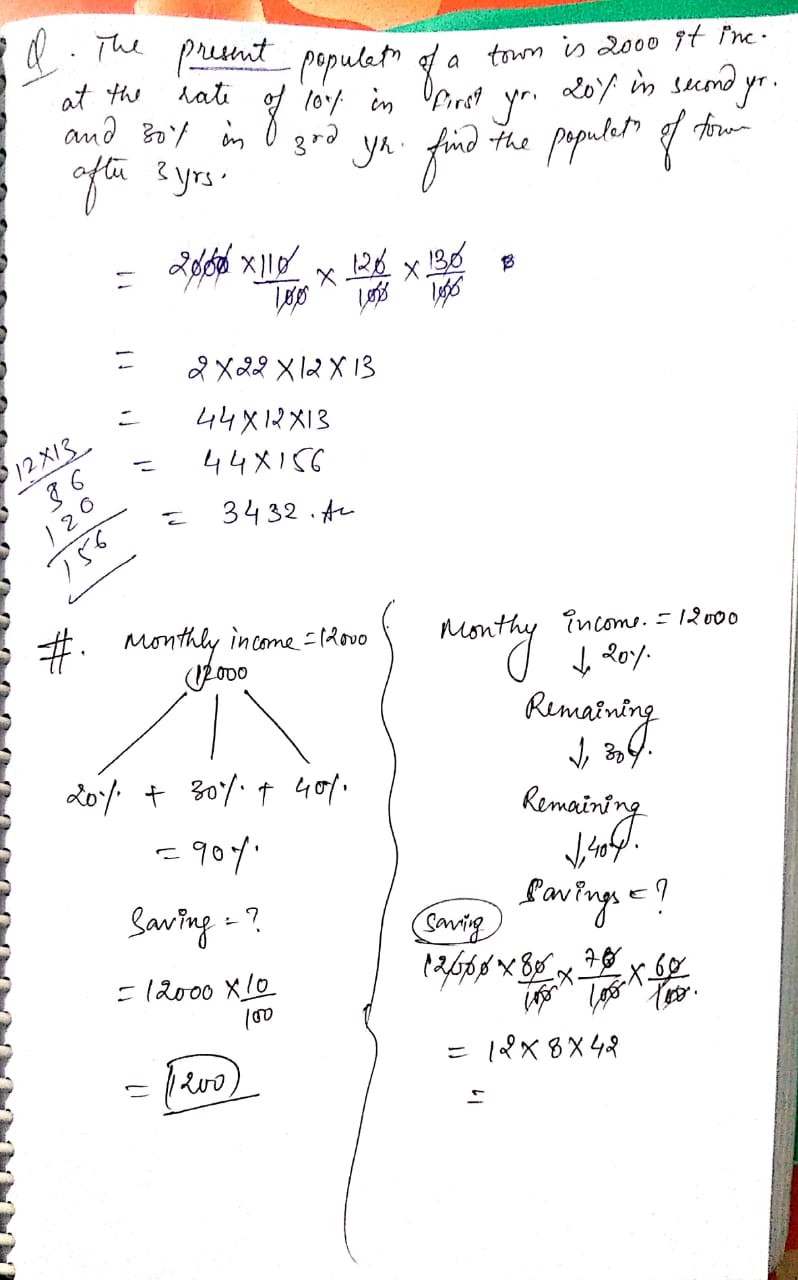 Q. The present populatn of a town is 2000 it inc.
at the rate of 10% in first yr. 20% in second yr.
and 30% in 3rd yr. find the populatn of town
after 3 yrs.
= 2000 × 110/100 × 120/100 × 130/100
= 2 × 22 × 12 × 13
= 44 × 12 × 13
= 44 × 156
= 3432.
12 × 13
36
120
156
#. Monthly income = 12000
12000
20% + 30% + 40%
= 90%
Saving = ?
= 12000 × 10/100
= 1200
Monthy income. = 12000
↓ 20%.
Remaining
↓ 30%.
Remaining
↓ 40%.
Savings = ?
Saving
12000 × 80/100 × 70/100 × 60/100.
= 12 × 8 × 42
=